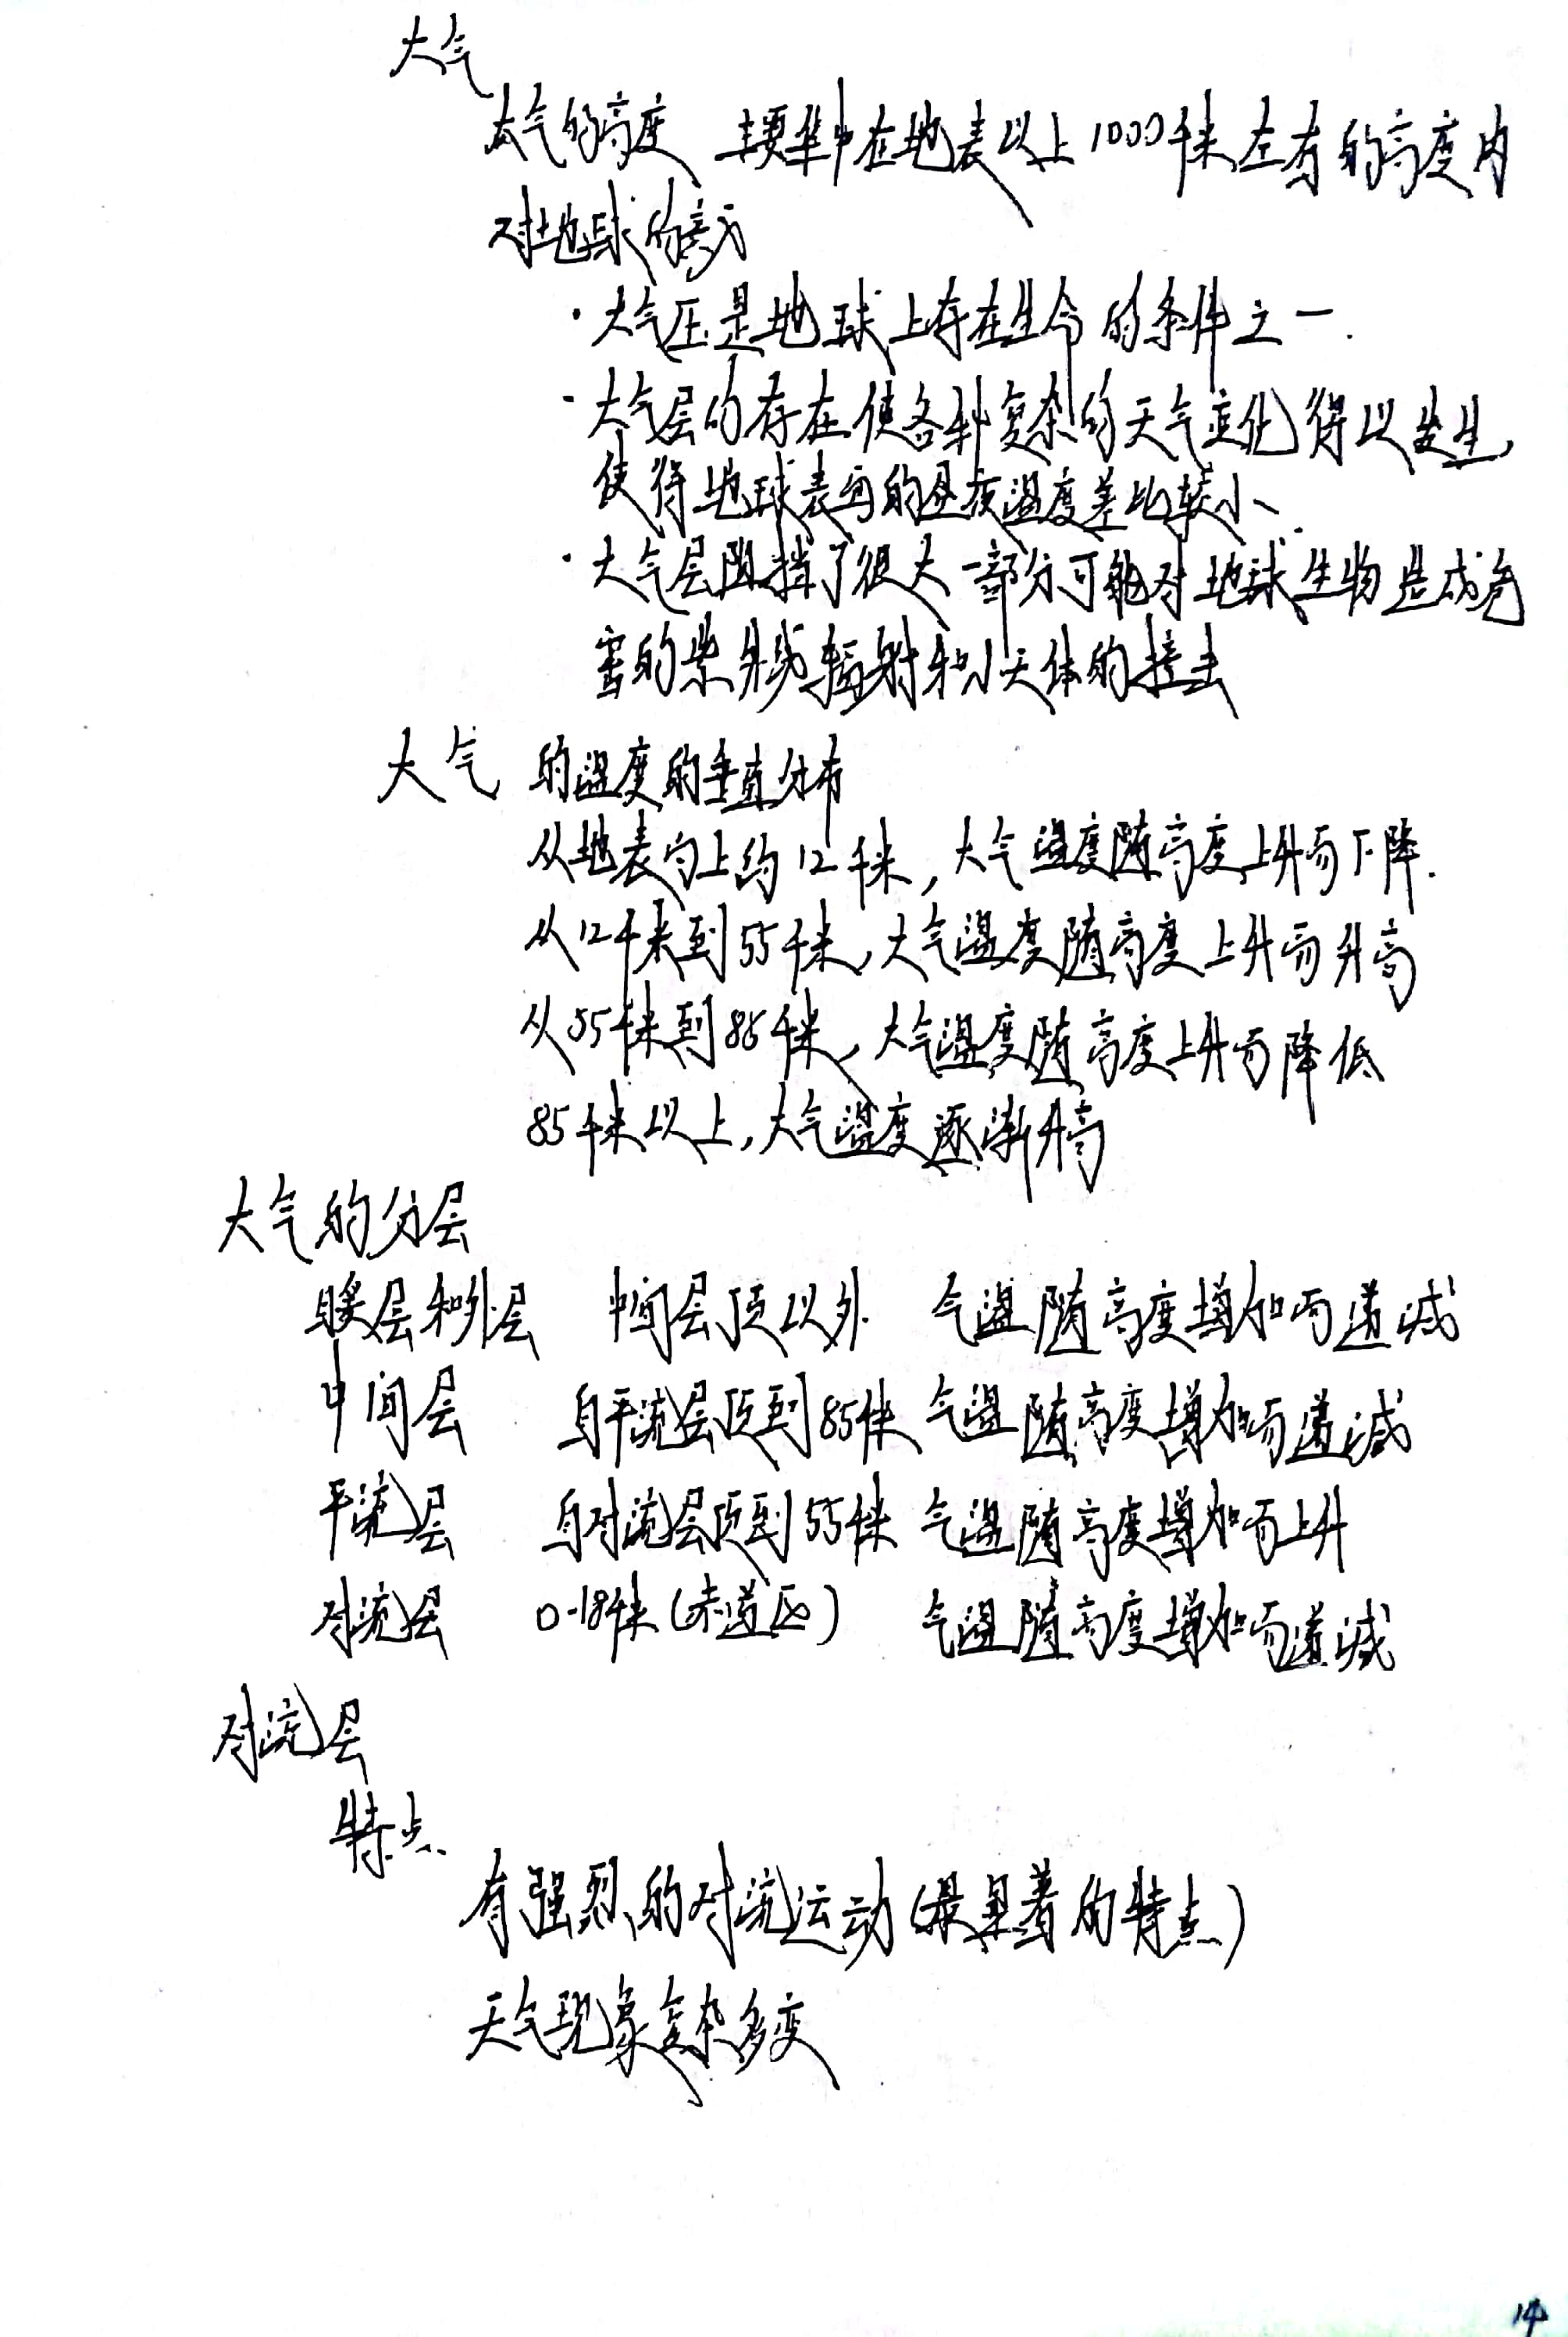 大气
大气的高度 主要集中在地表以上1000千米左右的高度内
对地球的意义
·大气压是地球上存在生命的条件之一.
·大气层的存在使各种复杂的天气变化得以发生,
使得地球表面的昼夜温度差比较小.
·大气层阻挡了很大一部分可能对地球生物造成危
害的紫外线辐射和小天体的撞击
大气 的温度的垂直分布
从地表向上约12千米,大气温度随高度上升而下降.
从12千米到55千米,大气温度随高度上升而升高
从55千米到85千米,大气温度随高度上升而降低
85千米以上,大气温度逐渐升高
大气的分层
暖层和外层 中间层顶以外 气温随高度增加而递减
中间层 自平流层顶到85千米 气温随高度增加而递减
平流层 自对流层顶到55千米 气温随高度增加而上升
对流层 0-18千米(赤道区) 气温随高度增加而递减
对流层
特点
有强烈的对流运动(最显著的特点)
天气现象复杂多变
14